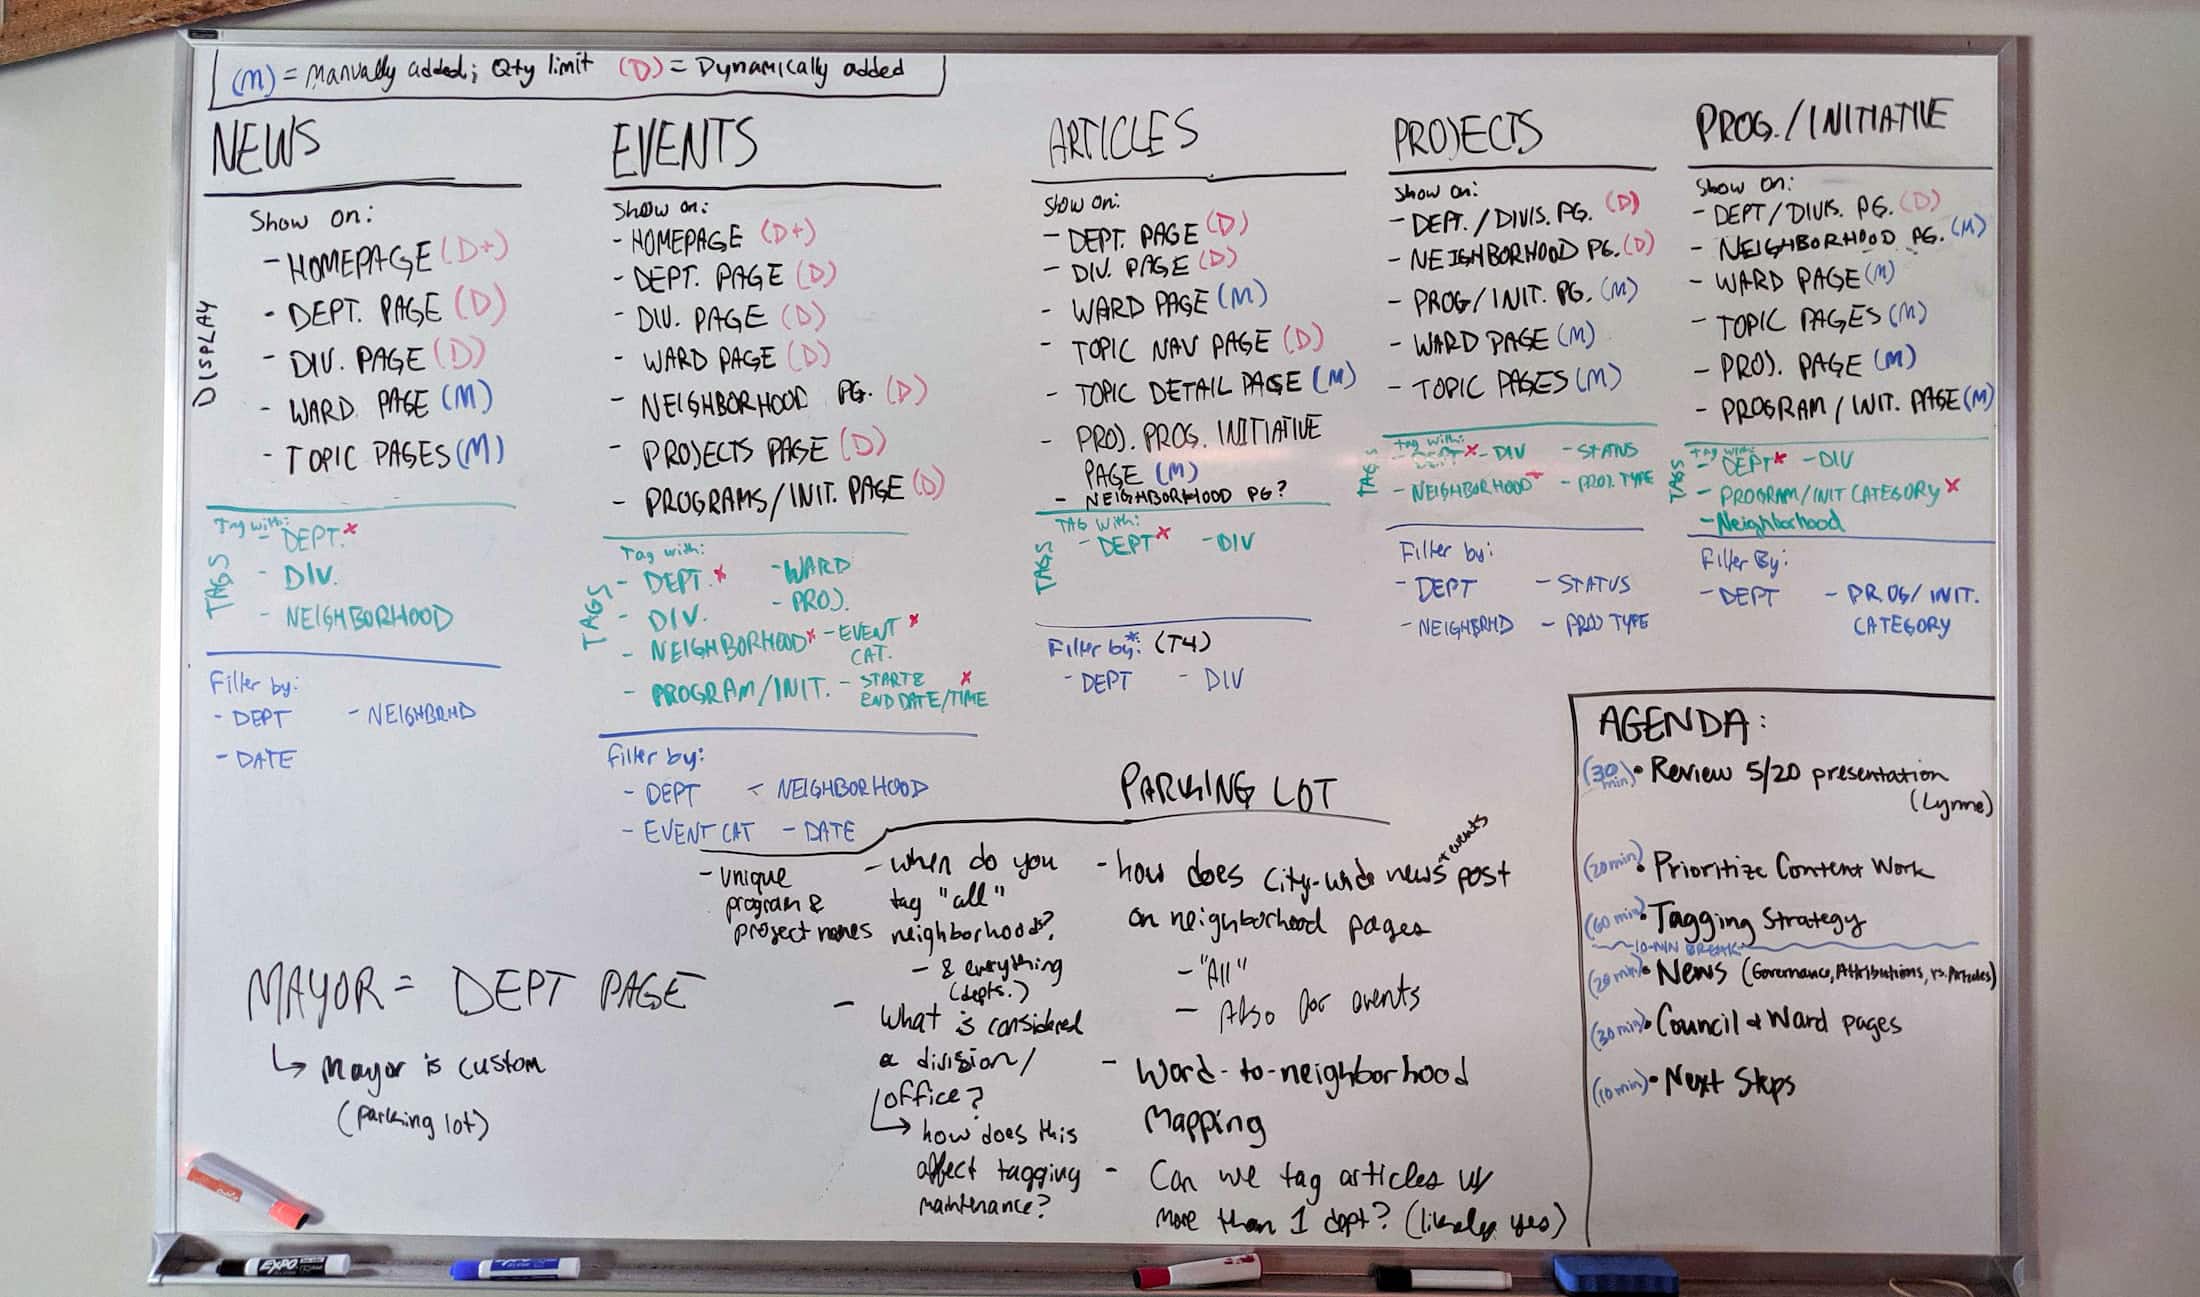 (M) = Manually added; Qty limit (D) = Dynamically added
NEWS
DISPLAY
Show on:
- HOMEPAGE (D+)
- DEPT. PAGE (D)
- DIV. PAGE (D)
- WARD PAGE (M)
- TOPIC PAGES (M)
TAGS
Tag with:
- DEPT. *
- DIV.
- NEIGHBORHOOD
Filter by:
- DEPT - NEIGHBRHD
- DATE
EVENTS
Show on:
- HOMEPAGE (D+)
- DEPT. PAGE (D)
- DIV. PAGE (D)
- WARD PAGE (D)
- NEIGHBORHOOD PG. (D)
- PROJECTS PAGE (D)
- PROGRAMS/INIT. PAGE (D)
TAGS
Tag with:
- DEPT. * - WARD
- DIV. - PROJ.
- NEIGHBORHOOD * - EVENT *
CAT.
- PROGRAM/INIT. - START & *
END DATE/TIME
Filter by:
- DEPT - NEIGHBORHOOD
- EVENT CAT - DATE
ARTICLES
Show on:
- DEPT. PAGE (D)
- DIV. PAGE (D)
- WARD PAGE (M)
- TOPIC NAV PAGE (D)
- TOPIC DETAIL PAGE (M)
- PROJ. PROG. INITIATIVE
PAGE (M)
- NEIGHBORHOOD PG?
TAGS
TAG With:
- DEPT * - DIV
Filter by*: (T4)
- DEPT - DIV
PROJECTS
Show on:
- DEPT. / DIVIS. PG. (D)
- NEIGHBORHOOD PG. (D)
- PROG/INIT. PG. (M)
- WARD PAGE (M)
- TOPIC PAGES (M)
TAGS
Tag with:
- DEPT * - DIV - STATUS
- NEIGHBORHOOD * - PROJ. TYPE
Filter by:
- DEPT - STATUS
- NEIGHBRHD - PROJ TYPE
PROG./INITIATIVE
Show on:
- DEPT/DIVIS. PG. (D)
- NEIGHBORHOOD PG. (M)
- WARD PAGE (M)
- TOPIC PAGES (M)
- PROJ. PAGE (M)
- PROGRAM/INIT. PAGE (M)
TAGS
Tag with:
- DEPT * - DIV
- PROGRAM/INIT CATEGORY *
- Neighborhood
Filter By:
- DEPT - PROG/INIT.
CATEGORY
PARKING LOT
- unique
program &
project names
- when do you
tag "all"
neighborhoods?
- & everything
(depts.)
- What is considered
a division/
office?
↳ how does this
affect tagging
maintenance?
- how does city-wide news + events post
on neighborhood pages
- "All"
- Also for events
- Ward-to-neighborhood
Mapping
- Can we tag articles w/
more than 1 dept? (likely yes)
MAYOR = DEPT PAGE
↳ Mayor is custom
(parking lot)
AGENDA:
(30 min) • Review 5/20 presentation
(Lynne)
(20 min) • Prioritize Content Work
(60 min) • Tagging Strategy
10-MIN BREAK
(20 min) • News (Governance, Attributions, vs. Articles)
(30 min) • Council & Ward pages
(10 min) • Next Steps
EXPO